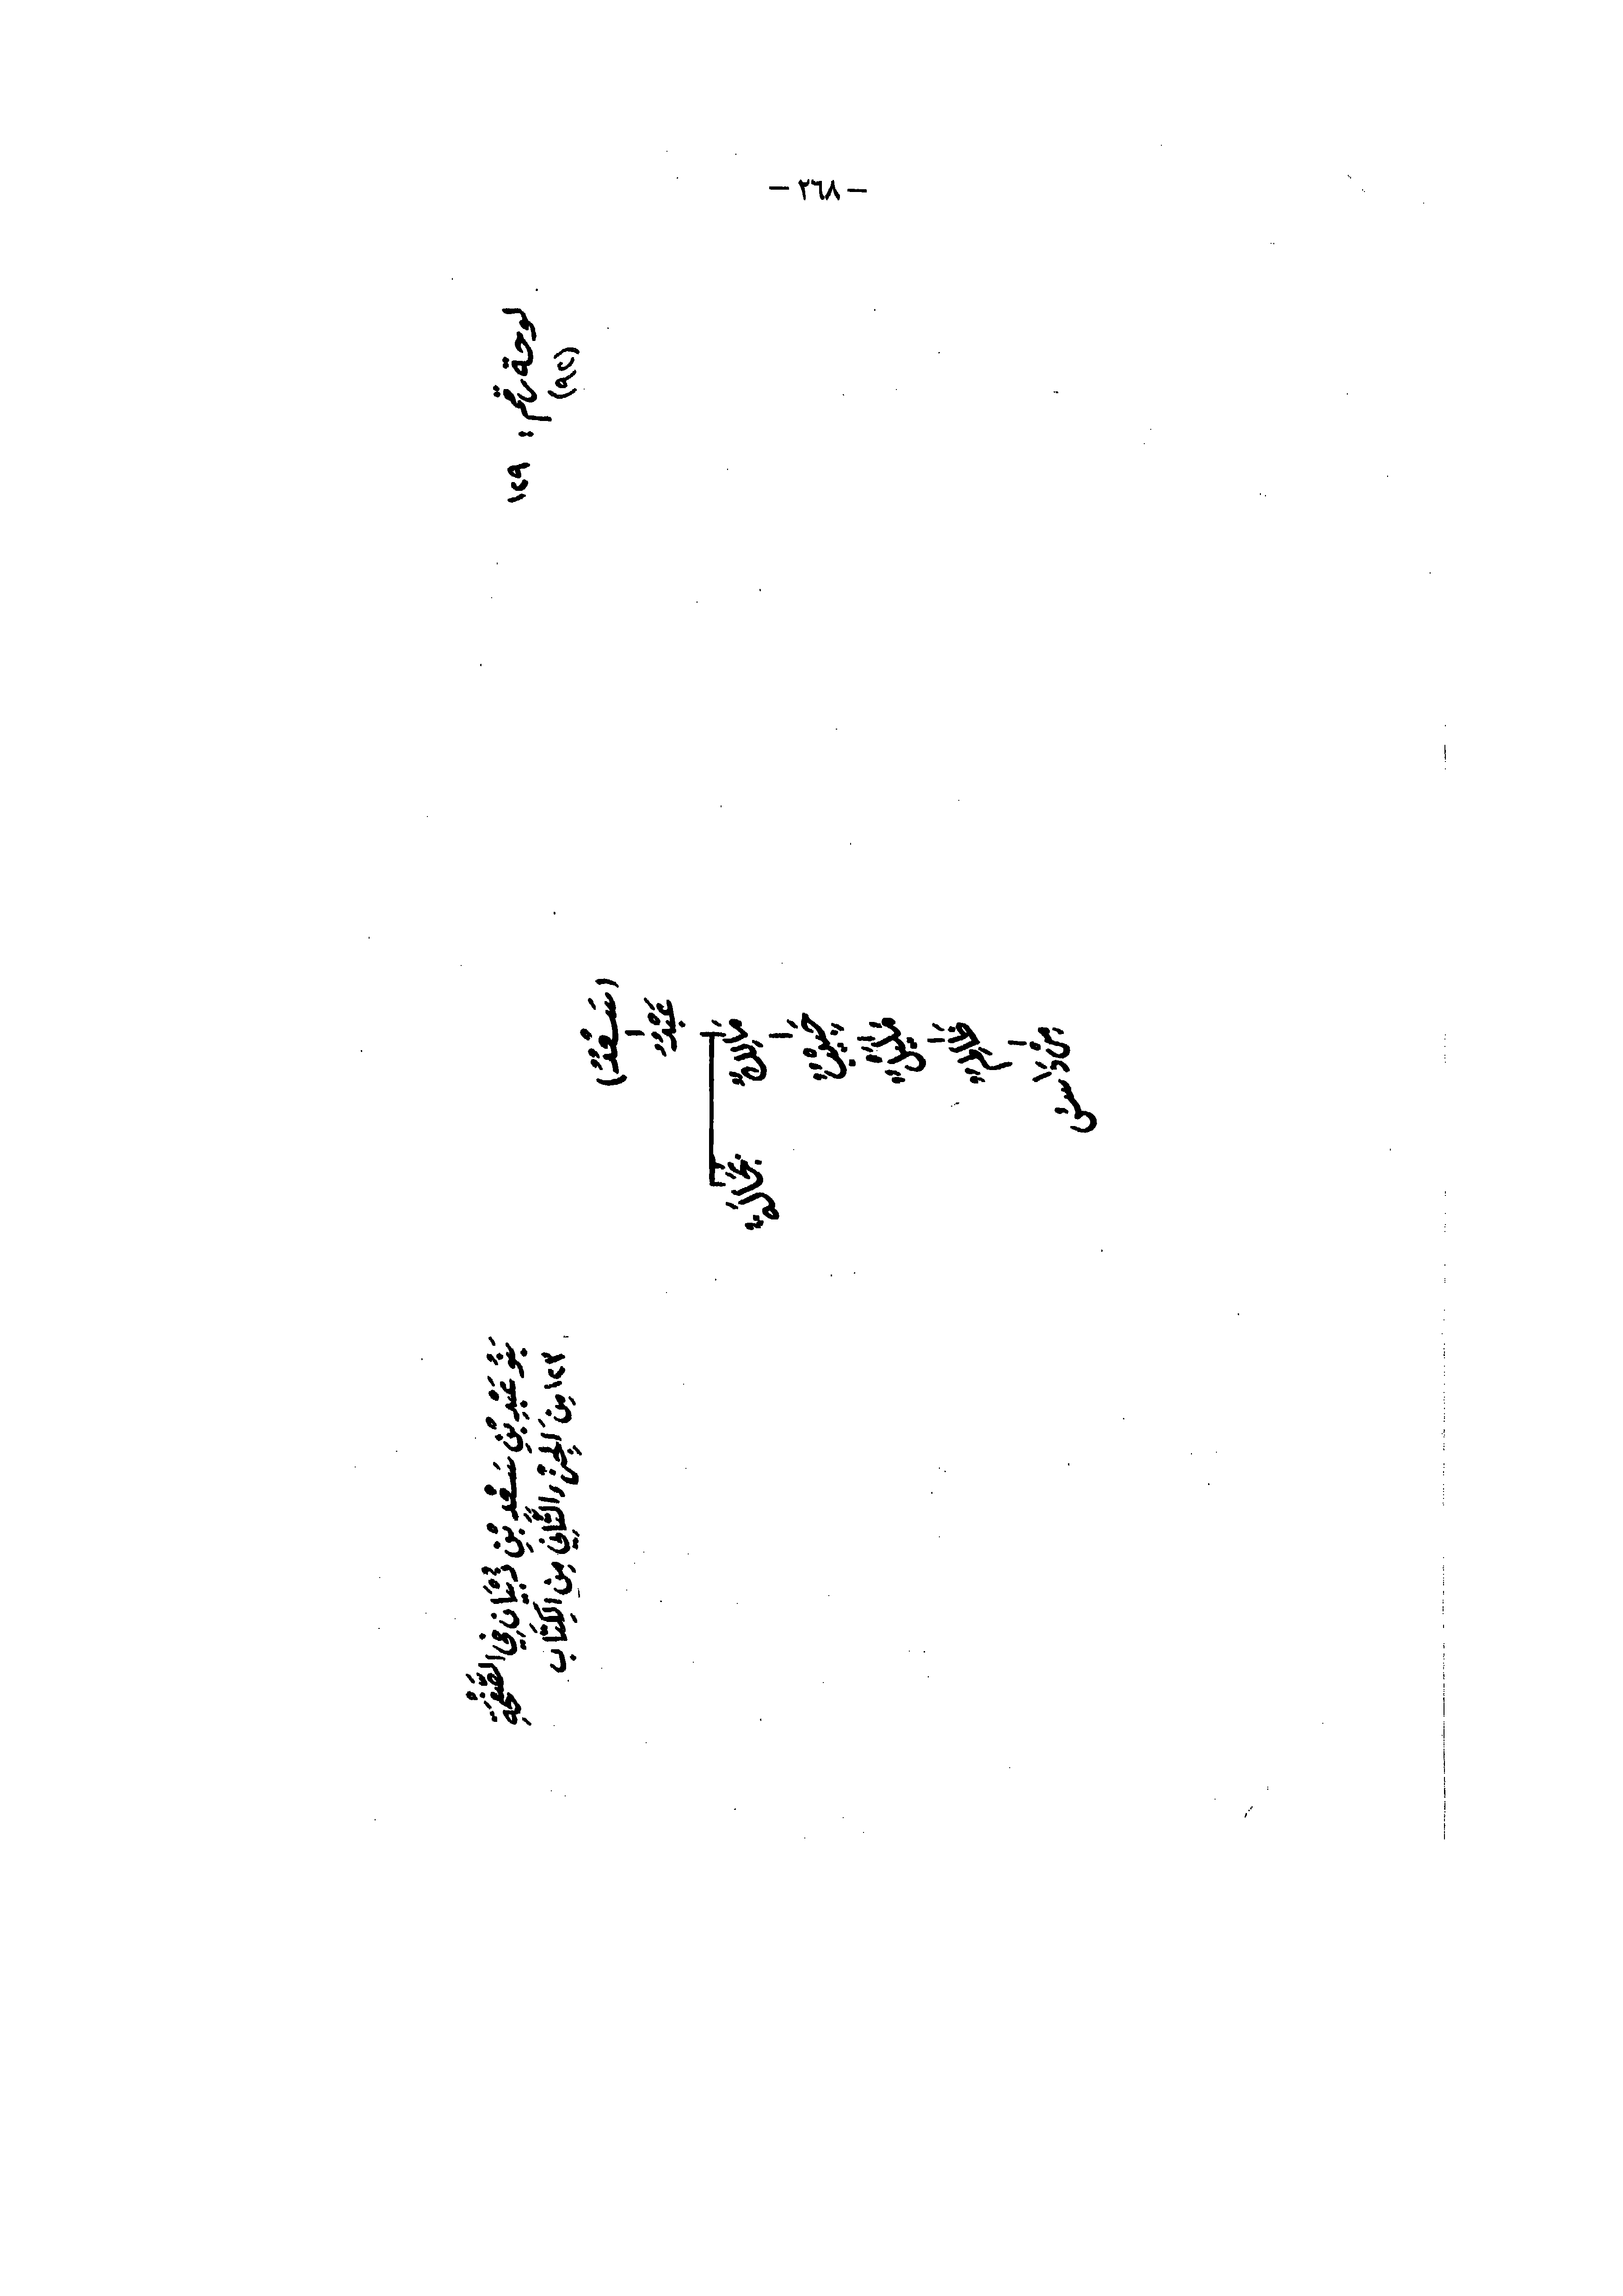 — ٢٦٨ —
لوحة رقم : ١٢٩
(٩٢)
بَنُو عَبْدِ بْنِ سَعْدِ بْنِ ذُبْيَانَ فِي الصَّفْحَةِ
١٢٣ مِنَ الْجُزْءِ الثَّانِي مِنَ الْكِتَابِ
(سَعْدٌ)
عَبْدٌ
مَالِكٌ بَجَالَةُ
ظَالِمٌ